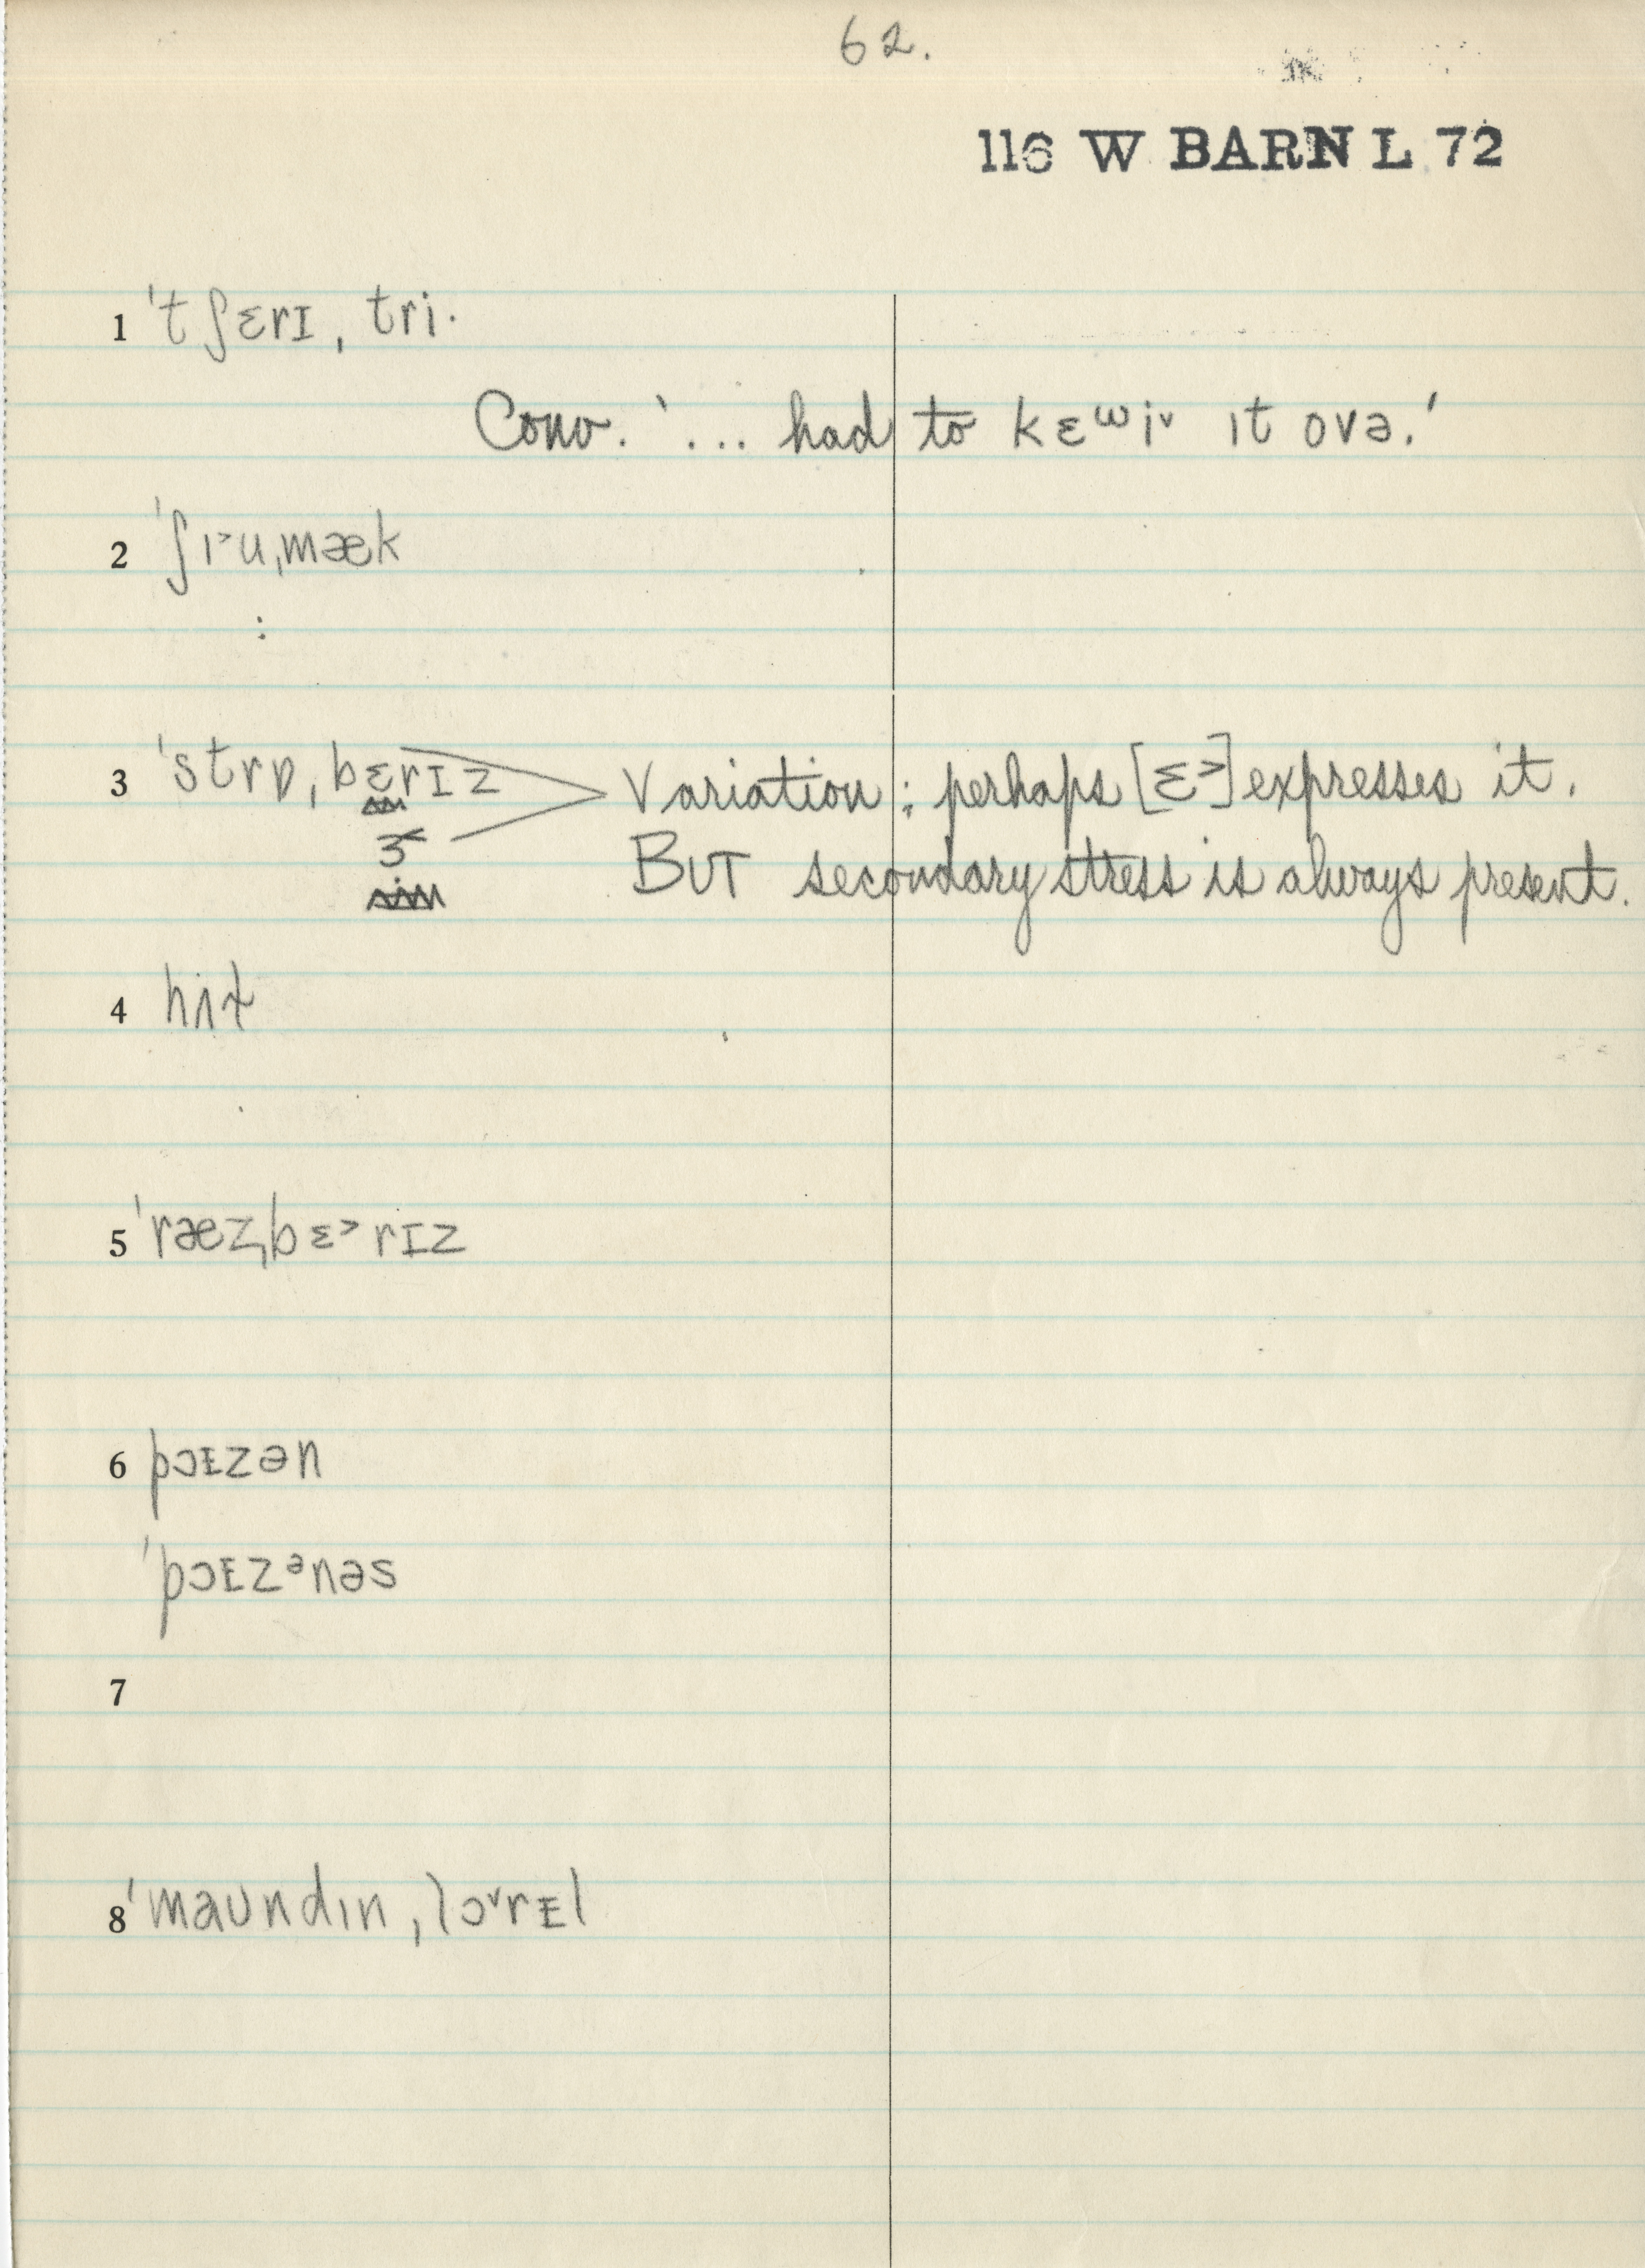 62.
116 W BARN L 72
1 ˈtʃɛrɪ ˌtri·
Conv. '... had to kɛʷi˅ ɪt ovə.'
2 ˈʃɪ˃uˌmæk
:
3 ˈstrɒˌbɛrɪz Variation: perhaps [ɛ˃] expresses it.
ɜ BUT secondary stress is always present.
4
5 ˈræzˌbɛ˃rɪz
6 pɔɪzən
ˈpɔɪzᵊnəs
7
8 ˈmaʊndɪn ˌlɔ˅rᴇl